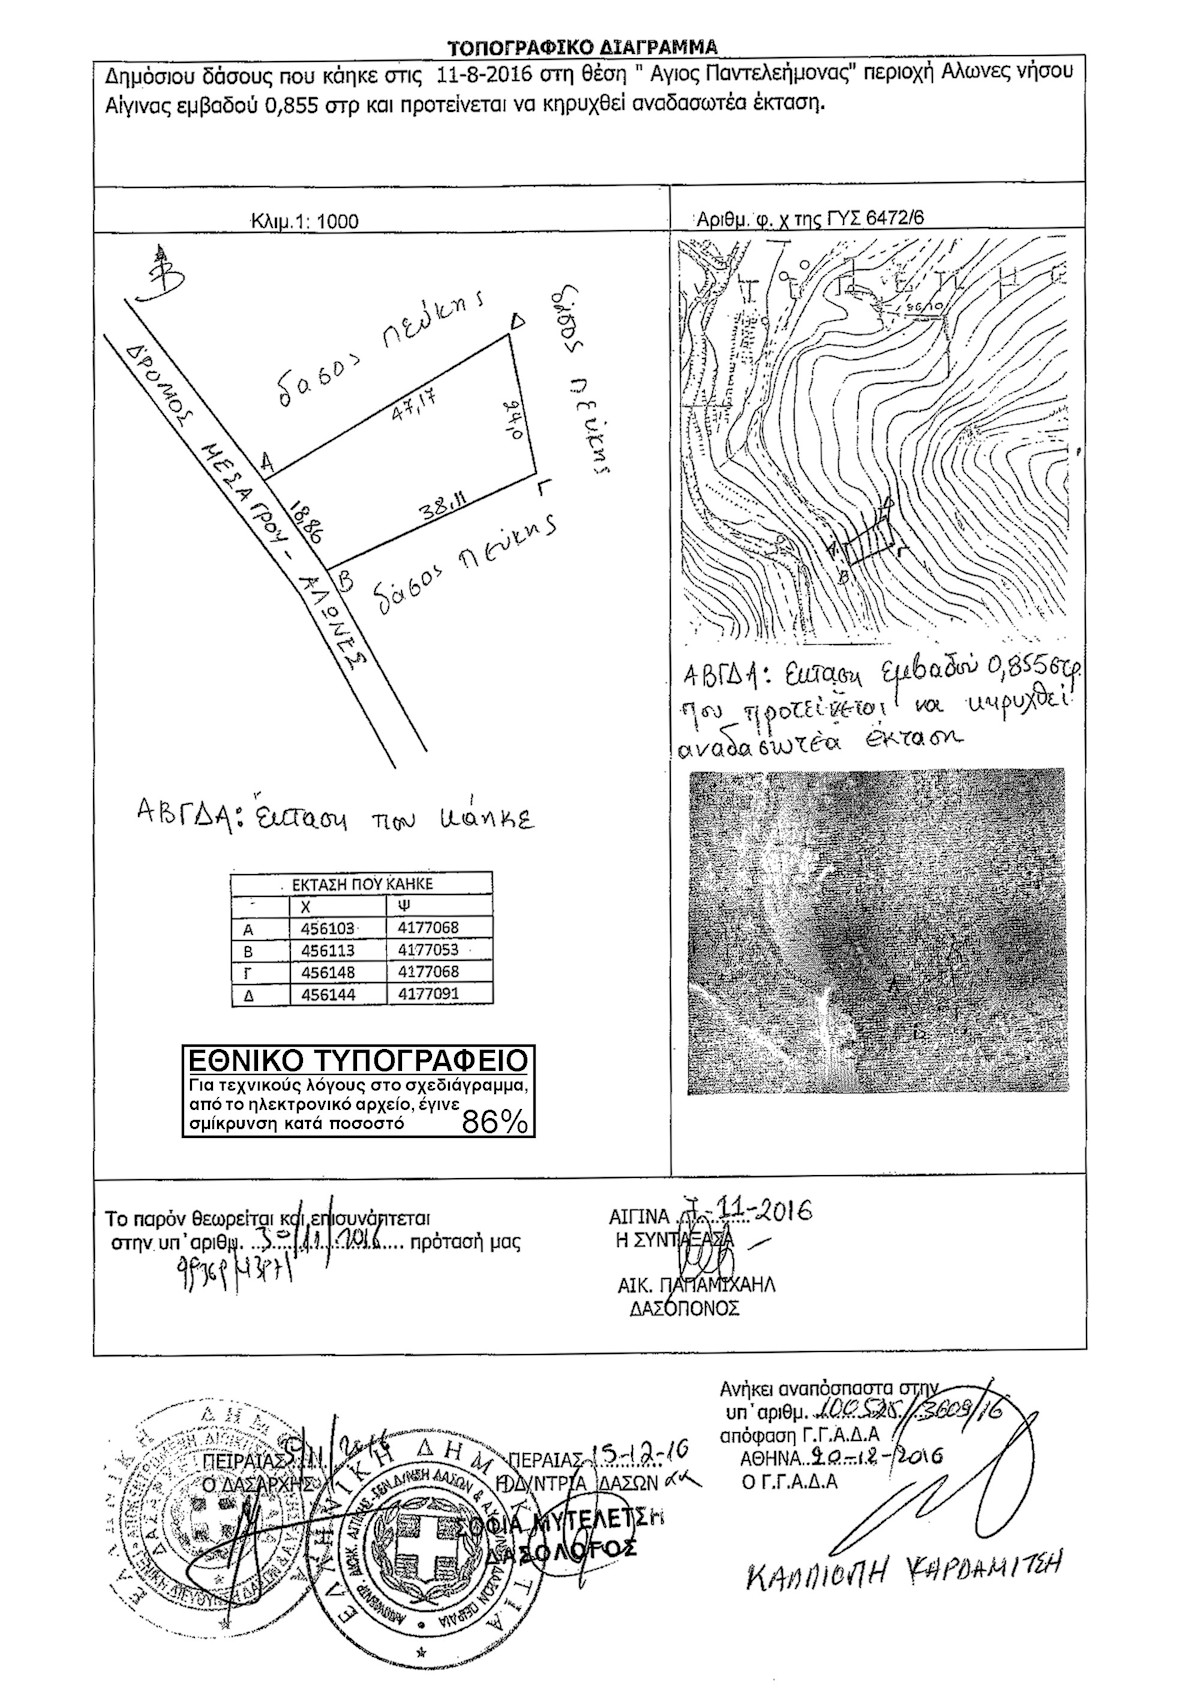 ΤΟΠΟΓΡΑΦΙΚΟ ΔΙΑΓΡΑΜΜΑ
Δημόσιου δάσους που κάηκε στις 11-8-2016 στη θέση " Αγιος Παντελεήμονας" περιοχή Αλωνες νήσου
Αίγινας εμβαδού 0,855 στρ και προτείνεται να κηρυχθεί αναδασωτέα έκταση.
Κλιμ.1: 1000
Αριθμ. φ. χ της ΓΥΣ 6472/6
Β
δασος πεύκης
δάσος πεύκης
Δ
47,17
24,0
Α
Γ
38,11
18,86
Β
δάσος πεύκης
ΔΡΟΜΟΣ ΜΕΣΑΓΡΟΥ - ΑΛΩΝΕΣ
Δ
Α
Γ
Β
ΑΒΓΔΑ: έκταση εμβαδού 0,855στρ.
που προτείνεται να κηρυχθεί
αναδασωτέα έκταση
ΑΒΓΔΑ: έκταση που κάηκε
ΕΚΤΑΣΗ ΠΟΥ ΚΑΗΚΕ
Χ Ψ
Α 456103 4177068
Β 456113 4177053
Γ 456148 4177068
Δ 456144 4177091
ΕΘΝΙΚΟ ΤΥΠΟΓΡΑΦΕΙΟ
Για τεχνικούς λόγους στο σχεδιάγραμμα,
από το ηλεκτρονικό αρχείο, έγινε
σμίκρυνση κατά ποσοστό 86%
Το παρόν θεωρείται και επισυνάπτεται
στην υπ΄αριθμ. 30/11/2016 πρότασή μας
ΑΙΓΙΝΑ 7-11-2016
Η ΣΥΝΤΑΞΑΣΑ
ΑΙΚ. ΠΑΠΑΜΙΧΑΗΛ
ΔΑΣΟΠΟΝΟΣ
Ανήκει αναπόσπαστα στην
υπ΄αριθμ. 100525/3609/16
απόφαση Γ.Γ.Α.Δ.Α
ΑΘΗΝΑ 20-12-2016
Ο Γ.Γ.Α.Δ.Α
ΚΑΛΛΙΟΠΗ ΨΑΡΔΑΜΙΤΣΗ
ΠΕΙΡΑΙΑΣ
Ο ΔΑΣΑΡΧΗΣ
ΠΕΡΑΙΑΣ 15-12-16
Η Δ/ΝΤΡΙΑ ΔΑΣΩΝ αα
ΣΟΦΙΑ ΜΥΤΕΛΕΤΣΗ
ΔΑΣΟΛΟΓΟΣ
ΕΛΛΗΝΙΚΗ ΔΗΜΟΚΡΑΤΙΑ